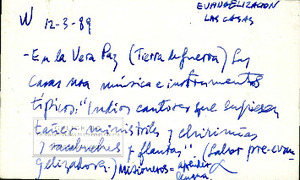 EVANGELIZACION
LAS CASAS
W 12-3-89
- En la Vera Paz (Tierra de guerra) Las
Casas usa música e instrumentos
típicos. "Indios cantores que supiesen
tañer ministriles y chirimías
y sacabuches y flautas". (Labor pre-evan
gelizadora.) Misioneros = aprender
lengua.